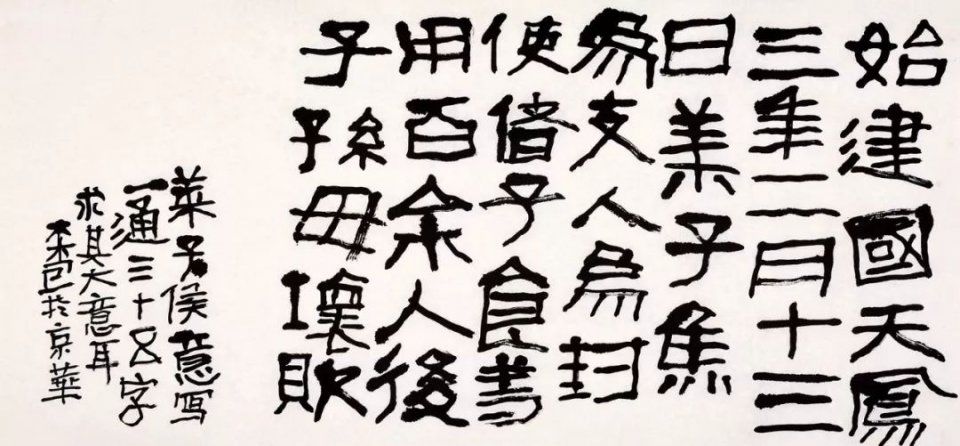 始建國天鳳
三年二月十三
日萊子侯
為支人為封
使偖子食等
用百余人後
子孫毋壞敗
萊子侯意写
一通三十五字
求其大意耳
於京華